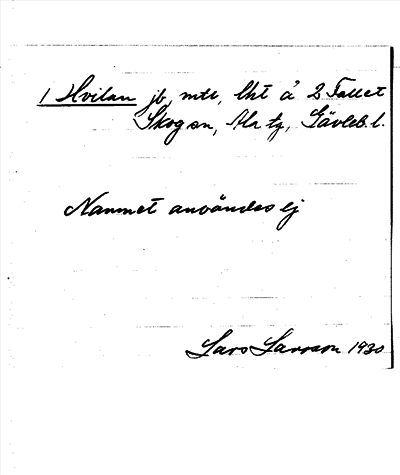 1 Hvilan jb, mtr, lht å 2 Fallet
Skog sn, Ala tg, Gävleb. l.
Namnet användes ej
Lars Larsson 1930